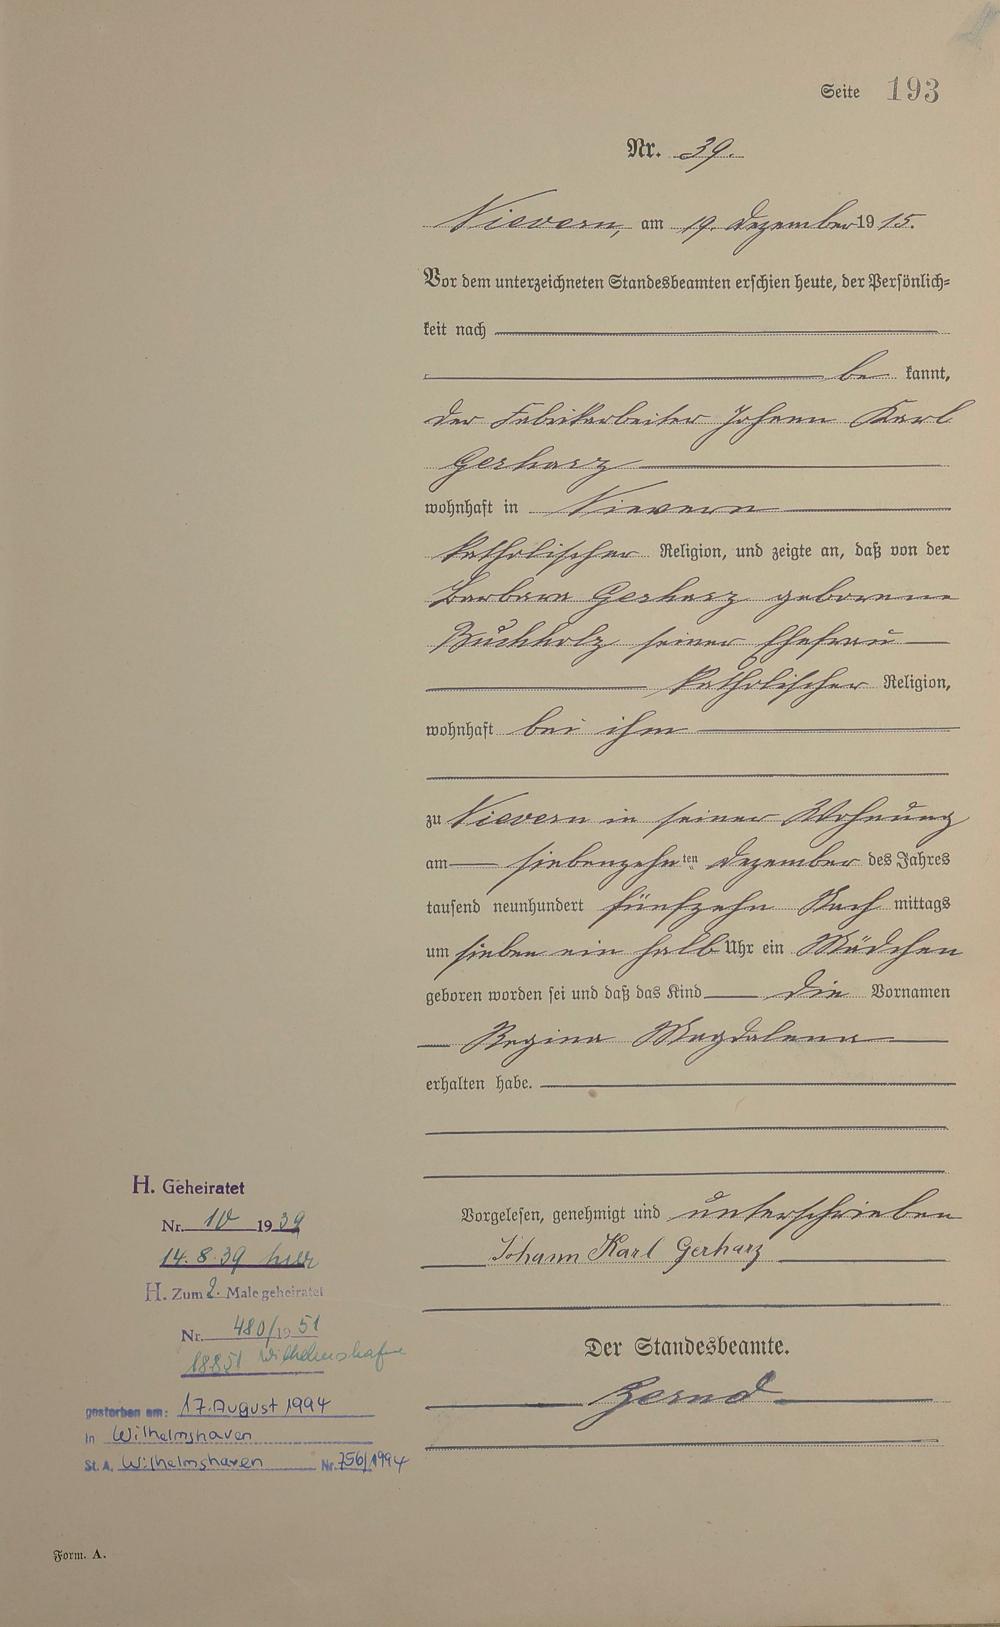 Seite 193
Nr. 39.
Nievern, am 19. Dezember 1915.
Vor dem unterzeichneten Standesbeamten erschien heute, der Persönlich-
keit nach
be kannt,
der Fabrikarbeiter Johann Karl
Gerharz
wohnhaft in Nievern
katholischer Religion, und zeigte an, daß von der
Barbara Gerharz geborene
Buchholz seiner Ehefrau
katholischer Religion,
wohnhaft bei ihm
zu Nievern in seiner Wohnung
am siebenzehn ten Dezember des Jahres
tausend neunhundert fünfzehn Nach mittags
um sieben ein halb Uhr ein Mädchen
geboren worden sei und daß das Kind die Vornamen
Regina Magdalena
erhalten habe.
Vorgelesen, genehmigt und unterschrieben
Johann Karl Gerharz
Der Standesbeamte.
H. Geheiratet
Nr. 10 1939
14.8.39 hier
H. Zum 2. Male geheiratet
Nr. 480/1951
Wilhelmshafen
gestorben am: 17. August 1994
in Wilhelmshaven
St. A. Wilhelmshaven Nr. 756/1994
Form. A.